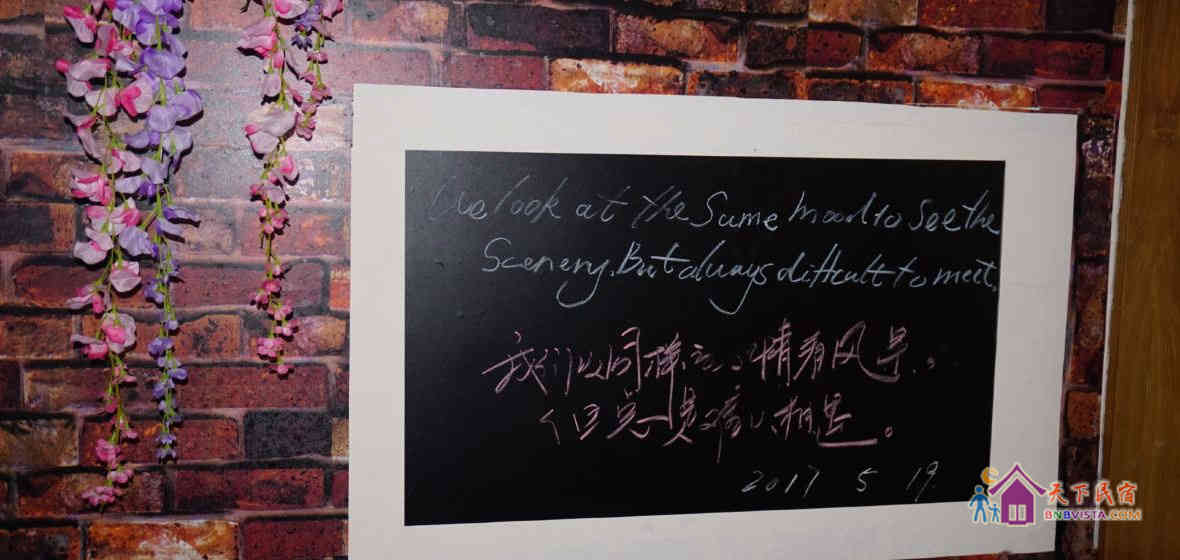 We look at the Same mood to See the
Scenery. But always difficult to meet.
我们以同样的心情看风景。
但总是难以相遇。
2017 5 19
天下民宿
BNBVISTA.COM